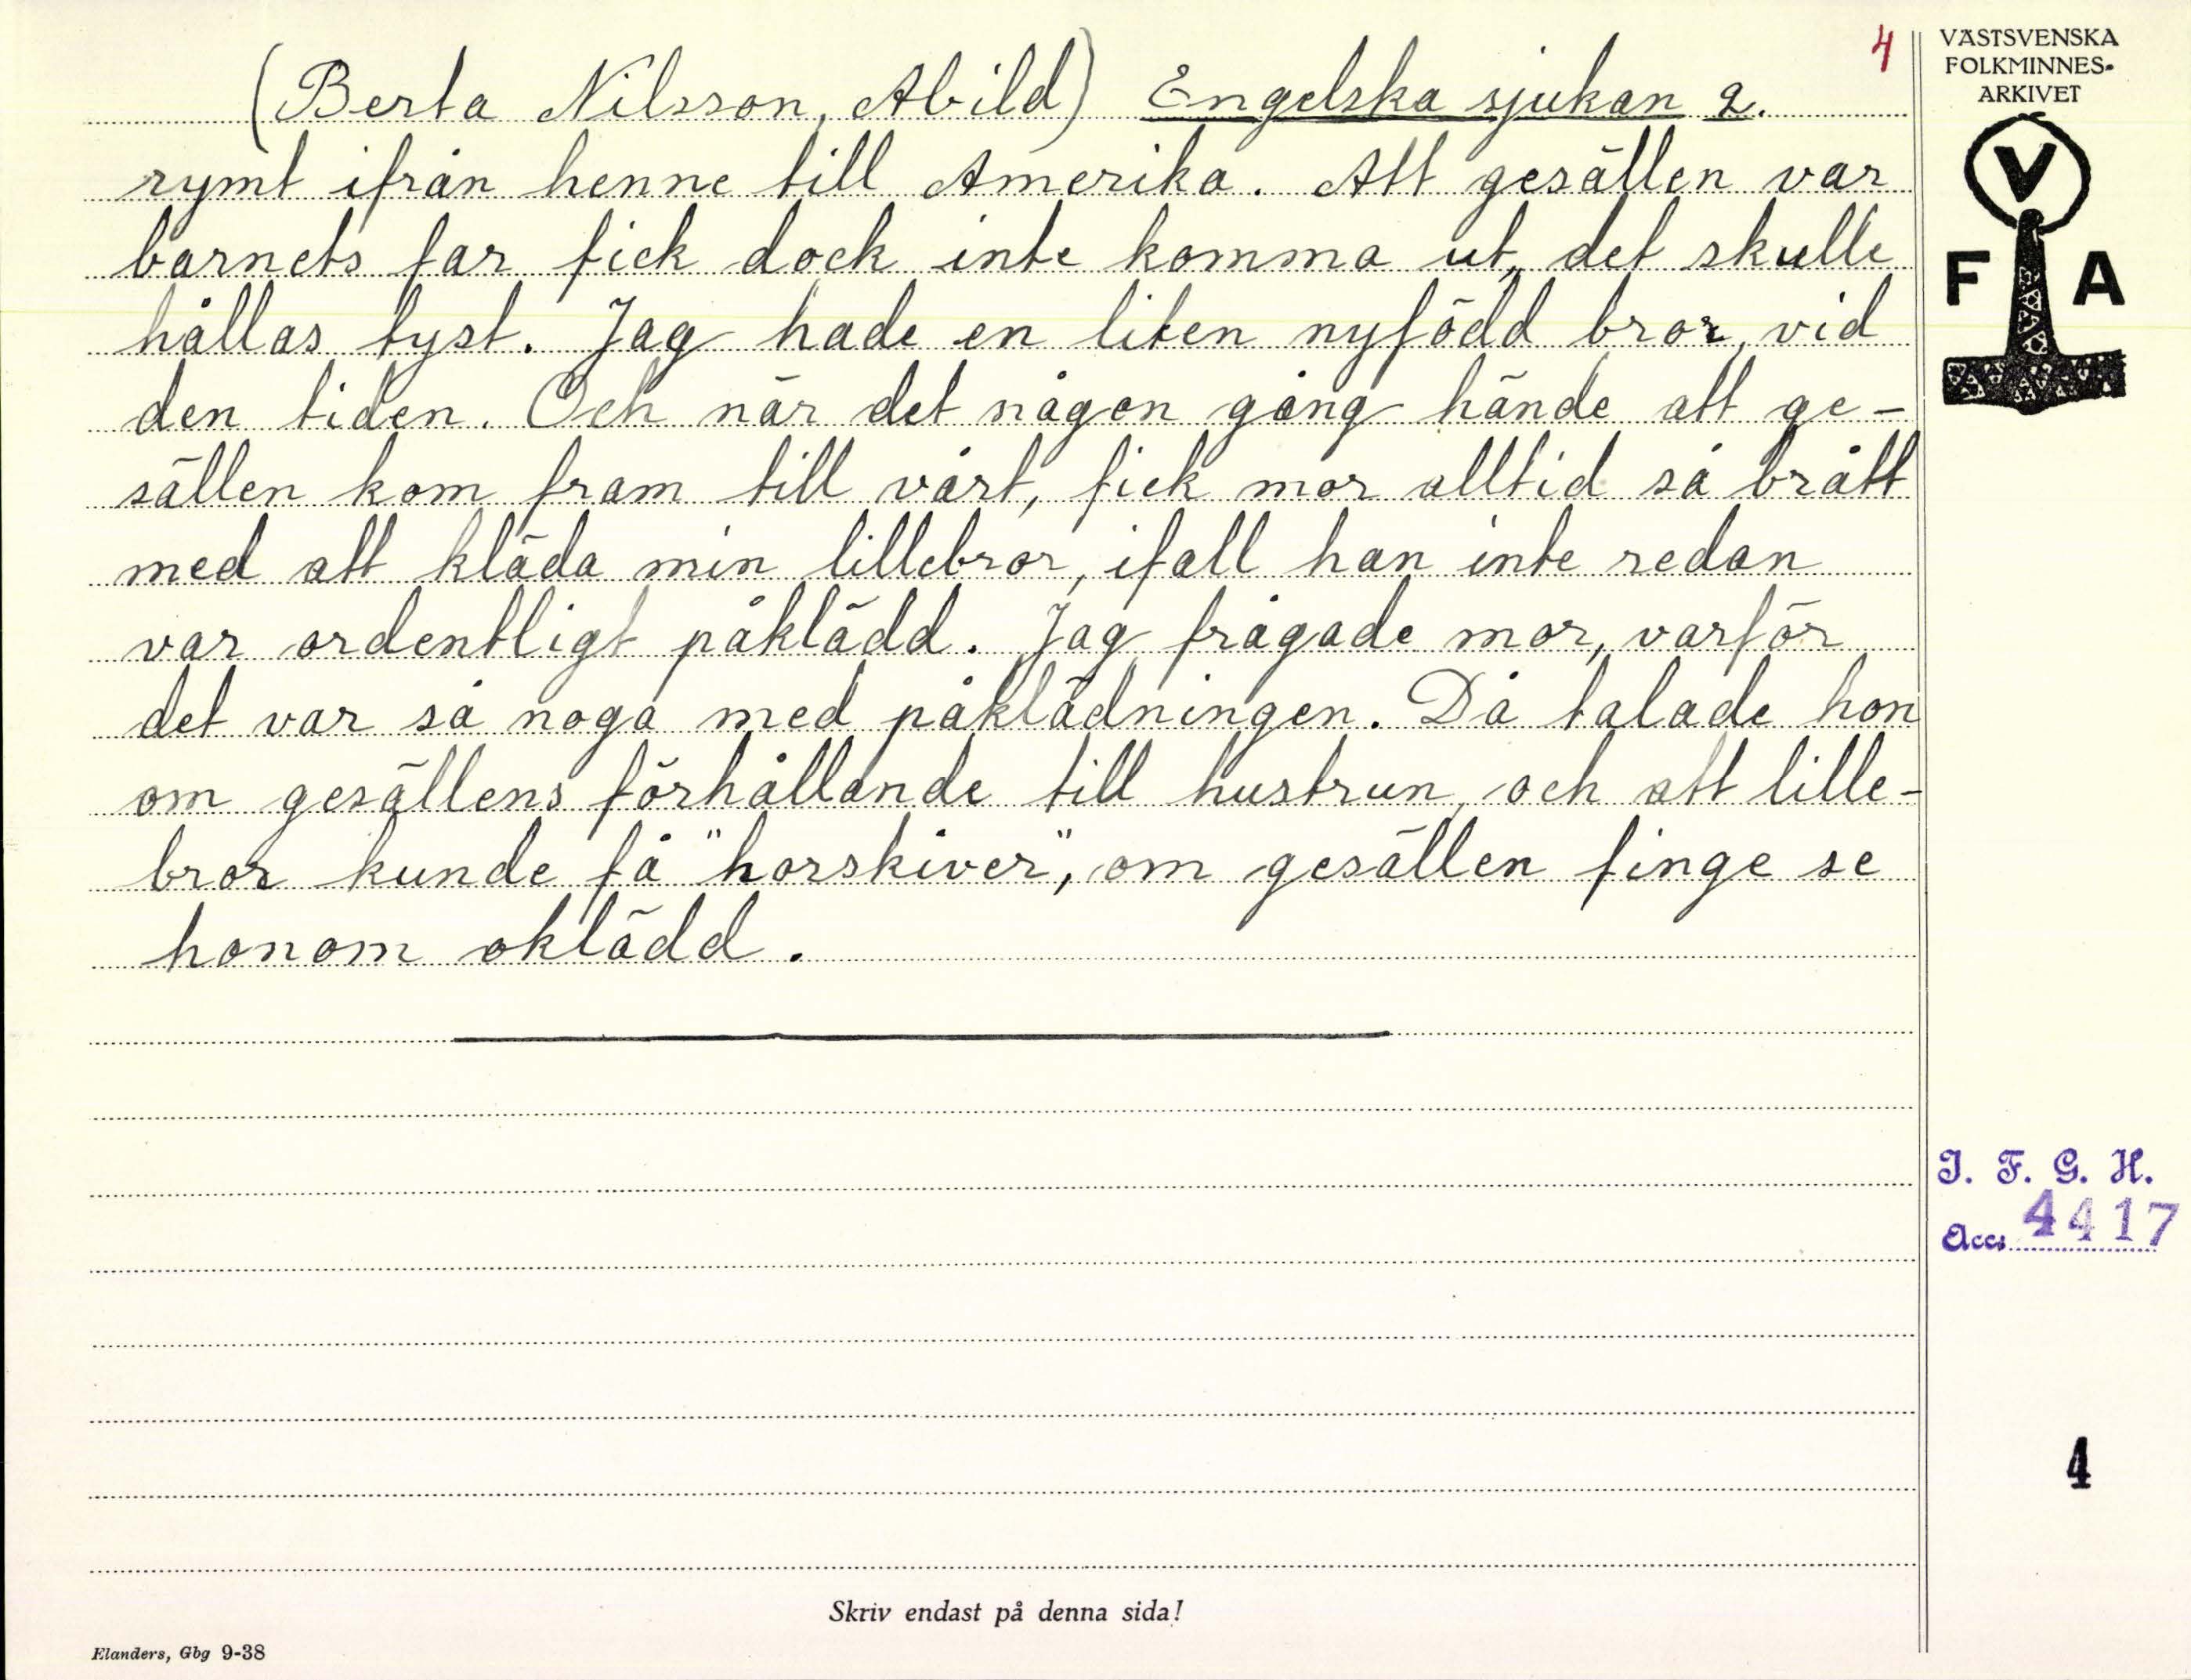 4
VÄSTSVENSKA
FOLKMINNES-
ARKIVET
V
F A
(Berta Nilsson, Abild) Engelska sjukan 2.
rymt ifrån henne till Amerika. Att gesällen var
barnets far fick dock inte komma ut, det skulle
hållas tyst. Jag hade en liten nyfödd bror, vid
den tiden. Och när det någon gång hände att ge-
sällen kom fram till vårt, fick mor alltid så brått
med att kläda min lillebror, ifall han inte redan
var ordentligt påklädd. Jag frågade mor, varför
det var så noga med påklädningen. Då talade hon
om gesällens förhållande till hustrun, och att lille-
bror kunde få "horskiver", om gesällen finge se
honom oklädd.
I. F. G. H.
Acc. 4417
4
Skriv endast på denna sida!
Elanders, Gbg 9-38